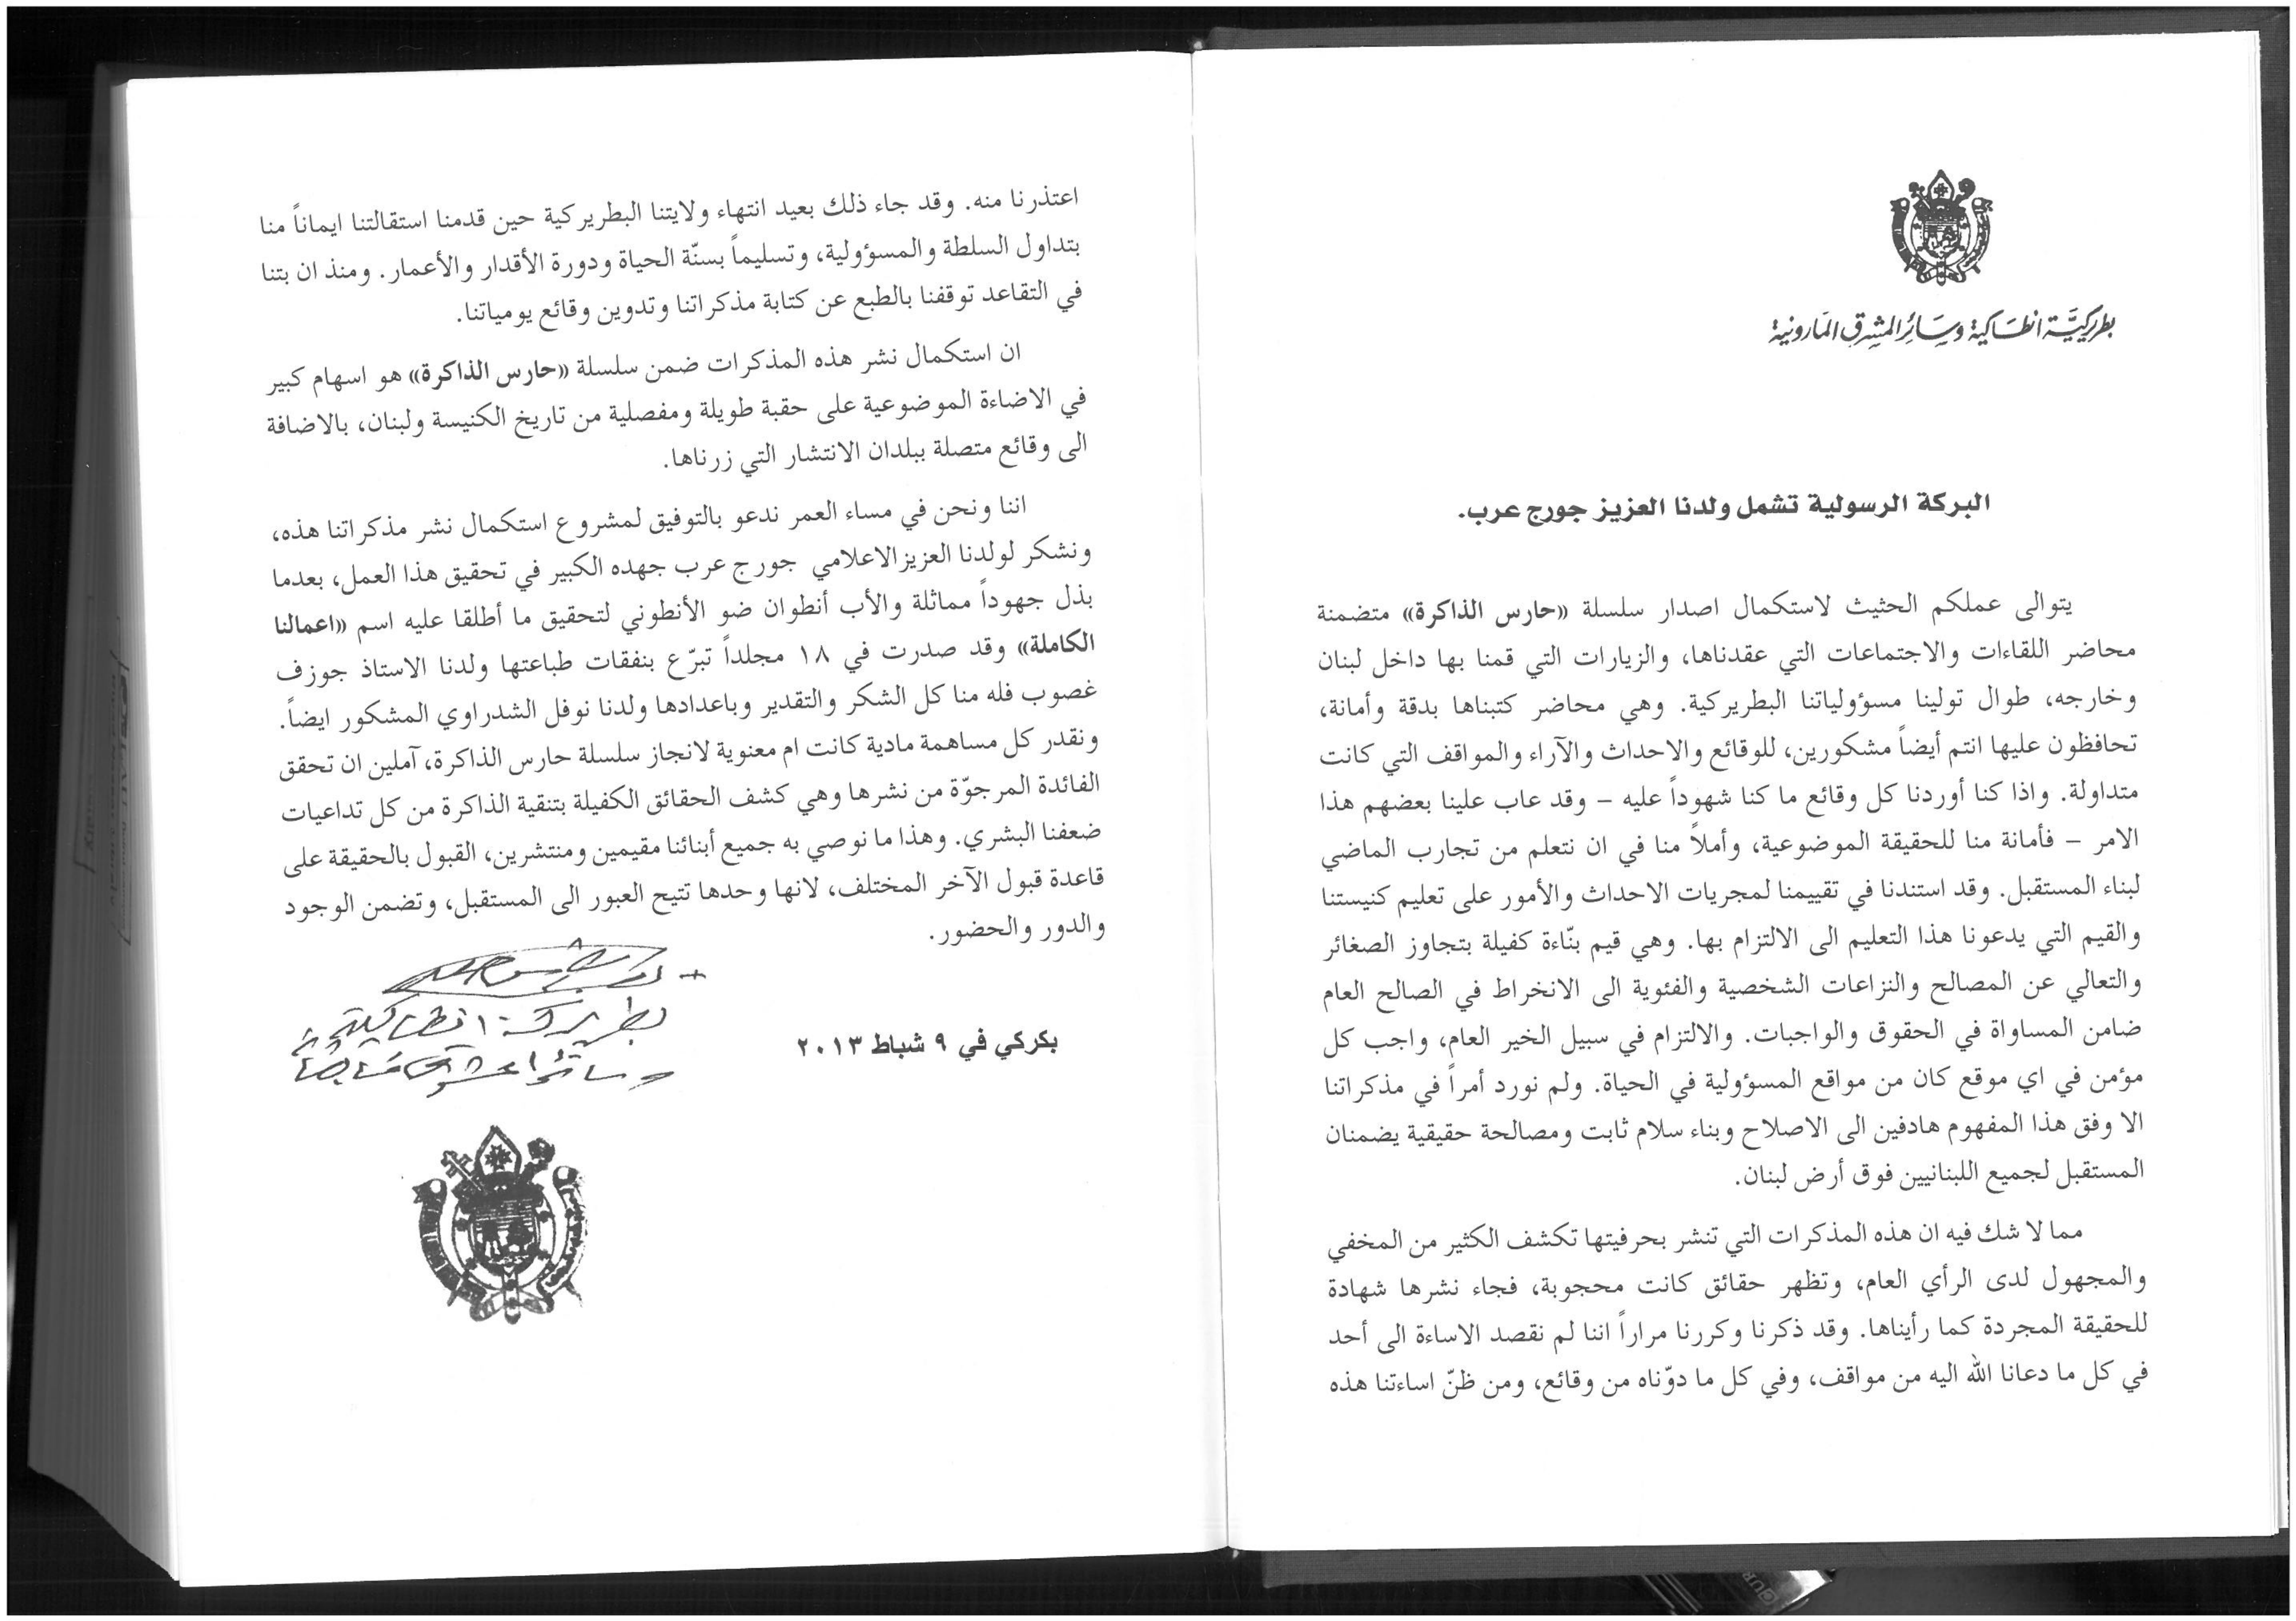 بطريركيَّة انطاكية وسائر المشرق المارونية
البركة الرسولية تشمل ولدنا العزيز جورج عرب.
يتوالى عملكم الحثيث لاستكمال اصدار سلسلة «حارس الذاكرة» متضمنة
محاضر اللقاءات والاجتماعات التي عقدناها، والزيارات التي قمنا بها داخل لبنان
وخارجه، طوال تولينا مسؤولياتنا البطريركية. وهي محاضر كتبناها بدقة وأمانة،
تحافظون عليها انتم أيضاً مشكورين، للوقائع والاحداث والآراء والمواقف التي كانت
متداولة. واذا كنا أوردنا كل وقائع ما كنا شهوداً عليه – وقد عاب علينا بعضهم هذا
الامر – فأمانة منا للحقيقة الموضوعية، وأملاً منا في ان نتعلم من تجارب الماضي
لبناء المستقبل. وقد استندنا في تقييمنا لمجريات الاحداث والأمور على تعليم كنيستنا
والقيم التي يدعونا هذا التعليم الى الالتزام بها. وهي قيم بنّاءة كفيلة بتجاوز الصغائر
والتعالي عن المصالح والنزاعات الشخصية والفئوية الى الانخراط في الصالح العام
ضامن المساواة في الحقوق والواجبات. والالتزام في سبيل الخير العام، واجب كل
مؤمن في اي موقع كان من مواقع المسؤولية في الحياة. ولم نورد أمراً في مذكراتنا
الا وفق هذا المفهوم هادفين الى الاصلاح وبناء سلام ثابت ومصالحة حقيقية يضمنان
المستقبل لجميع اللبنانيين فوق أرض لبنان.
مما لا شك فيه ان هذه المذكرات التي تنشر بحرفيتها تكشف الكثير من المخفي
والمجهول لدى الرأي العام، وتظهر حقائق كانت محجوبة، فجاء نشرها شهادة
للحقيقة المجردة كما رأيناها. وقد ذكرنا وكررنا مراراً اننا لم نقصد الاساءة الى أحد
في كل ما دعانا الله اليه من مواقف، وفي كل ما دوّناه من وقائع، ومن ظنّ اساءتنا هذه
اعتذرنا منه. وقد جاء ذلك بعيد انتهاء ولايتنا البطريركية حين قدمنا استقالتنا ايماناً منا
بتداول السلطة والمسؤولية، وتسليماً بسنّة الحياة ودورة الأقدار والأعمار. ومنذ ان بتنا
في التقاعد توقفنا بالطبع عن كتابة مذكراتنا وتدوين وقائع يومياتنا.
ان استكمال نشر هذه المذكرات ضمن سلسلة «حارس الذاكرة» هو اسهام كبير
في الاضاءة الموضوعية على حقبة طويلة ومفصلية من تاريخ الكنيسة ولبنان، بالاضافة
الى وقائع متصلة ببلدان الانتشار التي زرناها.
اننا ونحن في مساء العمر ندعو بالتوفيق لمشروع استكمال نشر مذكراتنا هذه،
ونشكر لولدنا العزيزالاعلامي جورج عرب جهده الكبير في تحقيق هذا العمل، بعدما
بذل جهوداً مماثلة والأب أنطوان ضو الأنطوني لتحقيق ما أطلقا عليه اسم «اعمالنا
الكاملة» وقد صدرت في ١٨ مجلداً تبرّع بنفقات طباعتها ولدنا الاستاذ جوزف
غصوب فله منا كل الشكر والتقدير وباعدادها ولدنا نوفل الشدراوي المشكور ايضاً.
ونقدر كل مساهمة مادية كانت ام معنوية لانجاز سلسلة حارس الذاكرة، آملين ان تحقق
الفائدة المرجوّة من نشرها وهي كشف الحقائق الكفيلة بتنقية الذاكرة من كل تداعيات
ضعفنا البشري. وهذا ما نوصي به جميع أبنائنا مقيمين ومنتشرين، القبول بالحقيقة على
قاعدة قبول الآخر المختلف، لانها وحدها تتيح العبور الى المستقبل، وتضمن الوجود
والدور والحضور.
بطريرك انطاكية
وسائر المشرق
بكركي في ٩ شباط ٢٠١٣